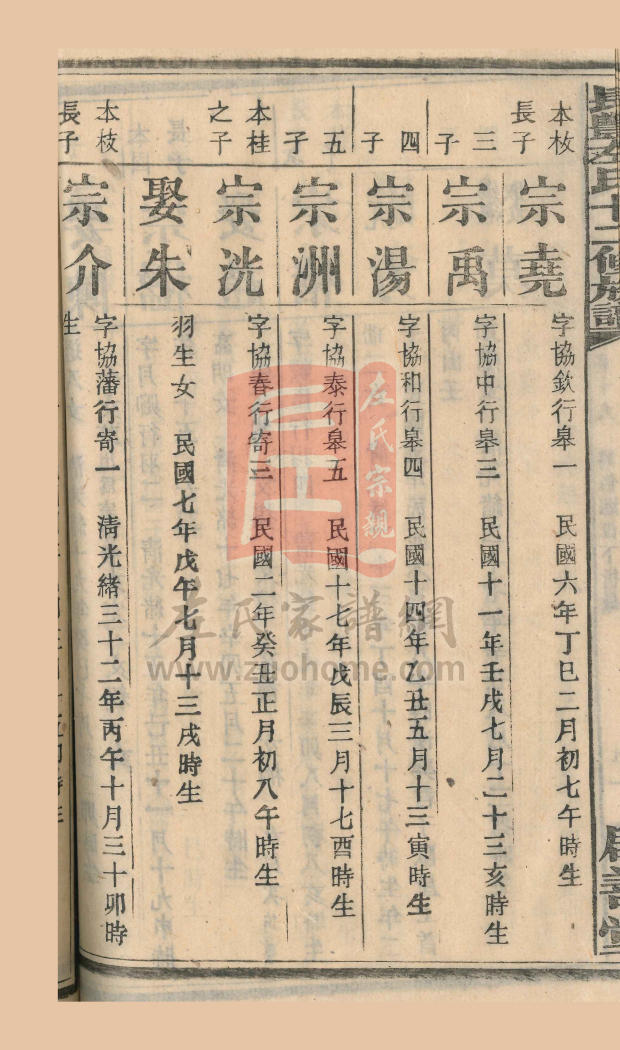 左氏十二修族譜
本枚長子
宗堯
字協欽行皋一 民國六年丁巳二月初七午時生
三子
宗禹
字協中行皋三 民國十一年壬戌七月二十三亥時生
四子
宗湯
字協和行皋四 民國十四年乙丑五月十三寅時生
五子
宗洲
字協泰行皋五 民國十七年戊辰三月十七酉時生
本桂之子
宗洸
字協春行寄三 民國二年癸丑正月初八午時生
娶朱
羽生女 民國七年戊午七月十三戌時生
本枝長子
宗介
字協藩行寄一 清光緒三十二年丙午十月三十卯時
生
左氏宗親
左氏家譜網
www.zuohome.com